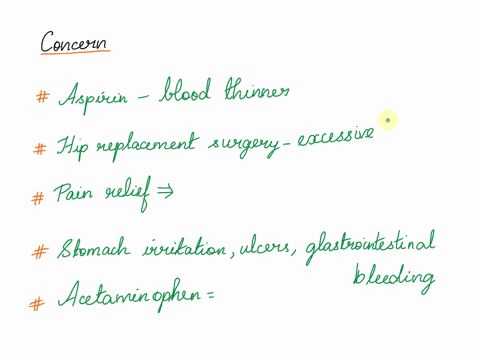 Concern
# Aspirin - blood thinner
# Hip replacement surgery - excessive
# Pain relief ⇒
# Stomach irritation, ulcers, glastrointestinal
bleeding
# Acetaminophen =